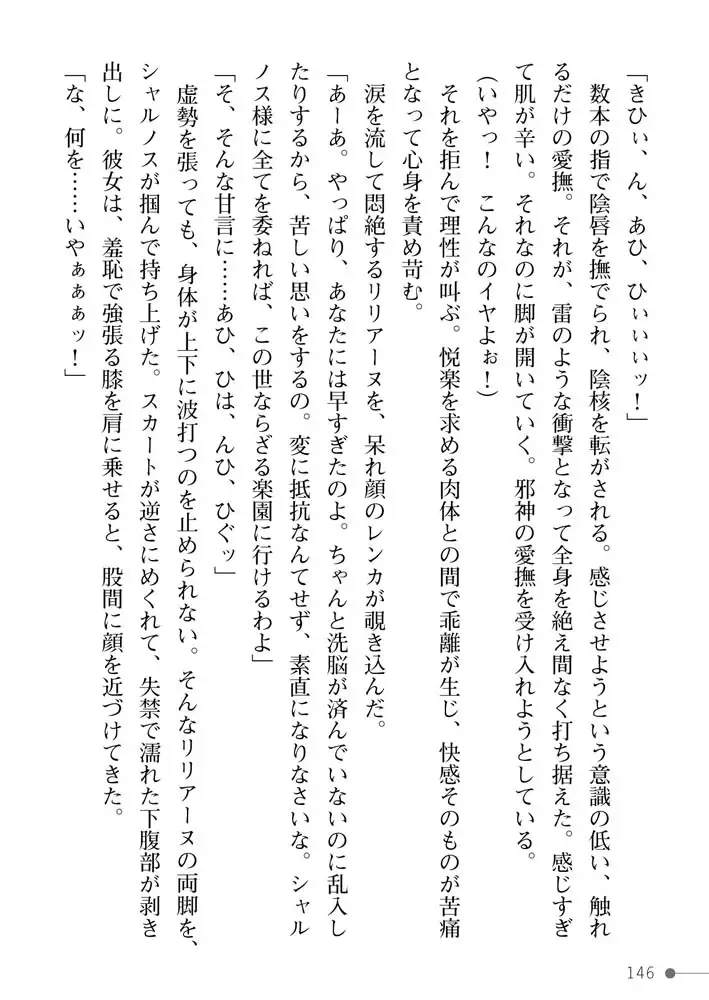 「きひぃ、ん、あひ、ひぃぃぃッ！」
数本の指で陰唇を撫でられ、陰核を転がされる。感じさせようという意識の低い、触れ
るだけの愛撫。それが、雷のような衝撃となって全身を絶え間なく打ち据えた。感じすぎ
て肌が辛い。それなのに脚が開いていく。邪神の愛撫を受け入れようとしている。
（いやっ！　こんなのイヤよぉ！）
それを拒んで理性が叫ぶ。悦楽を求める肉体との間で乖離が生じ、快感そのものが苦痛
となって心身を責め苛む。
涙を流して悶絶するリリアーヌを、呆れ顔のレンカが覗き込んだ。
「あーあ。やっぱり、あなたには早すぎたのよ。ちゃんと洗脳が済んでいないのに乱入し
たりするから、苦しい思いをするの。変に抵抗なんてせず、素直になりなさいな。シャル
ノス様に全てを委ねれば、この世ならざる楽園に行けるわよ」
「そ、そんな甘言に……あひ、ひは、んひ、ひぐッ」
虚勢を張っても、身体が上下に波打つのを止められない。そんなリリアーヌの両脚を、
シャルノスが掴んで持ち上げた。スカートが逆さにめくれて、失禁で濡れた下腹部が剥き
出しに。彼女は、羞恥で強張る膝を肩に乗せると、股間に顔を近づけてきた。
「な、何を……いやぁぁぁッ！」
146